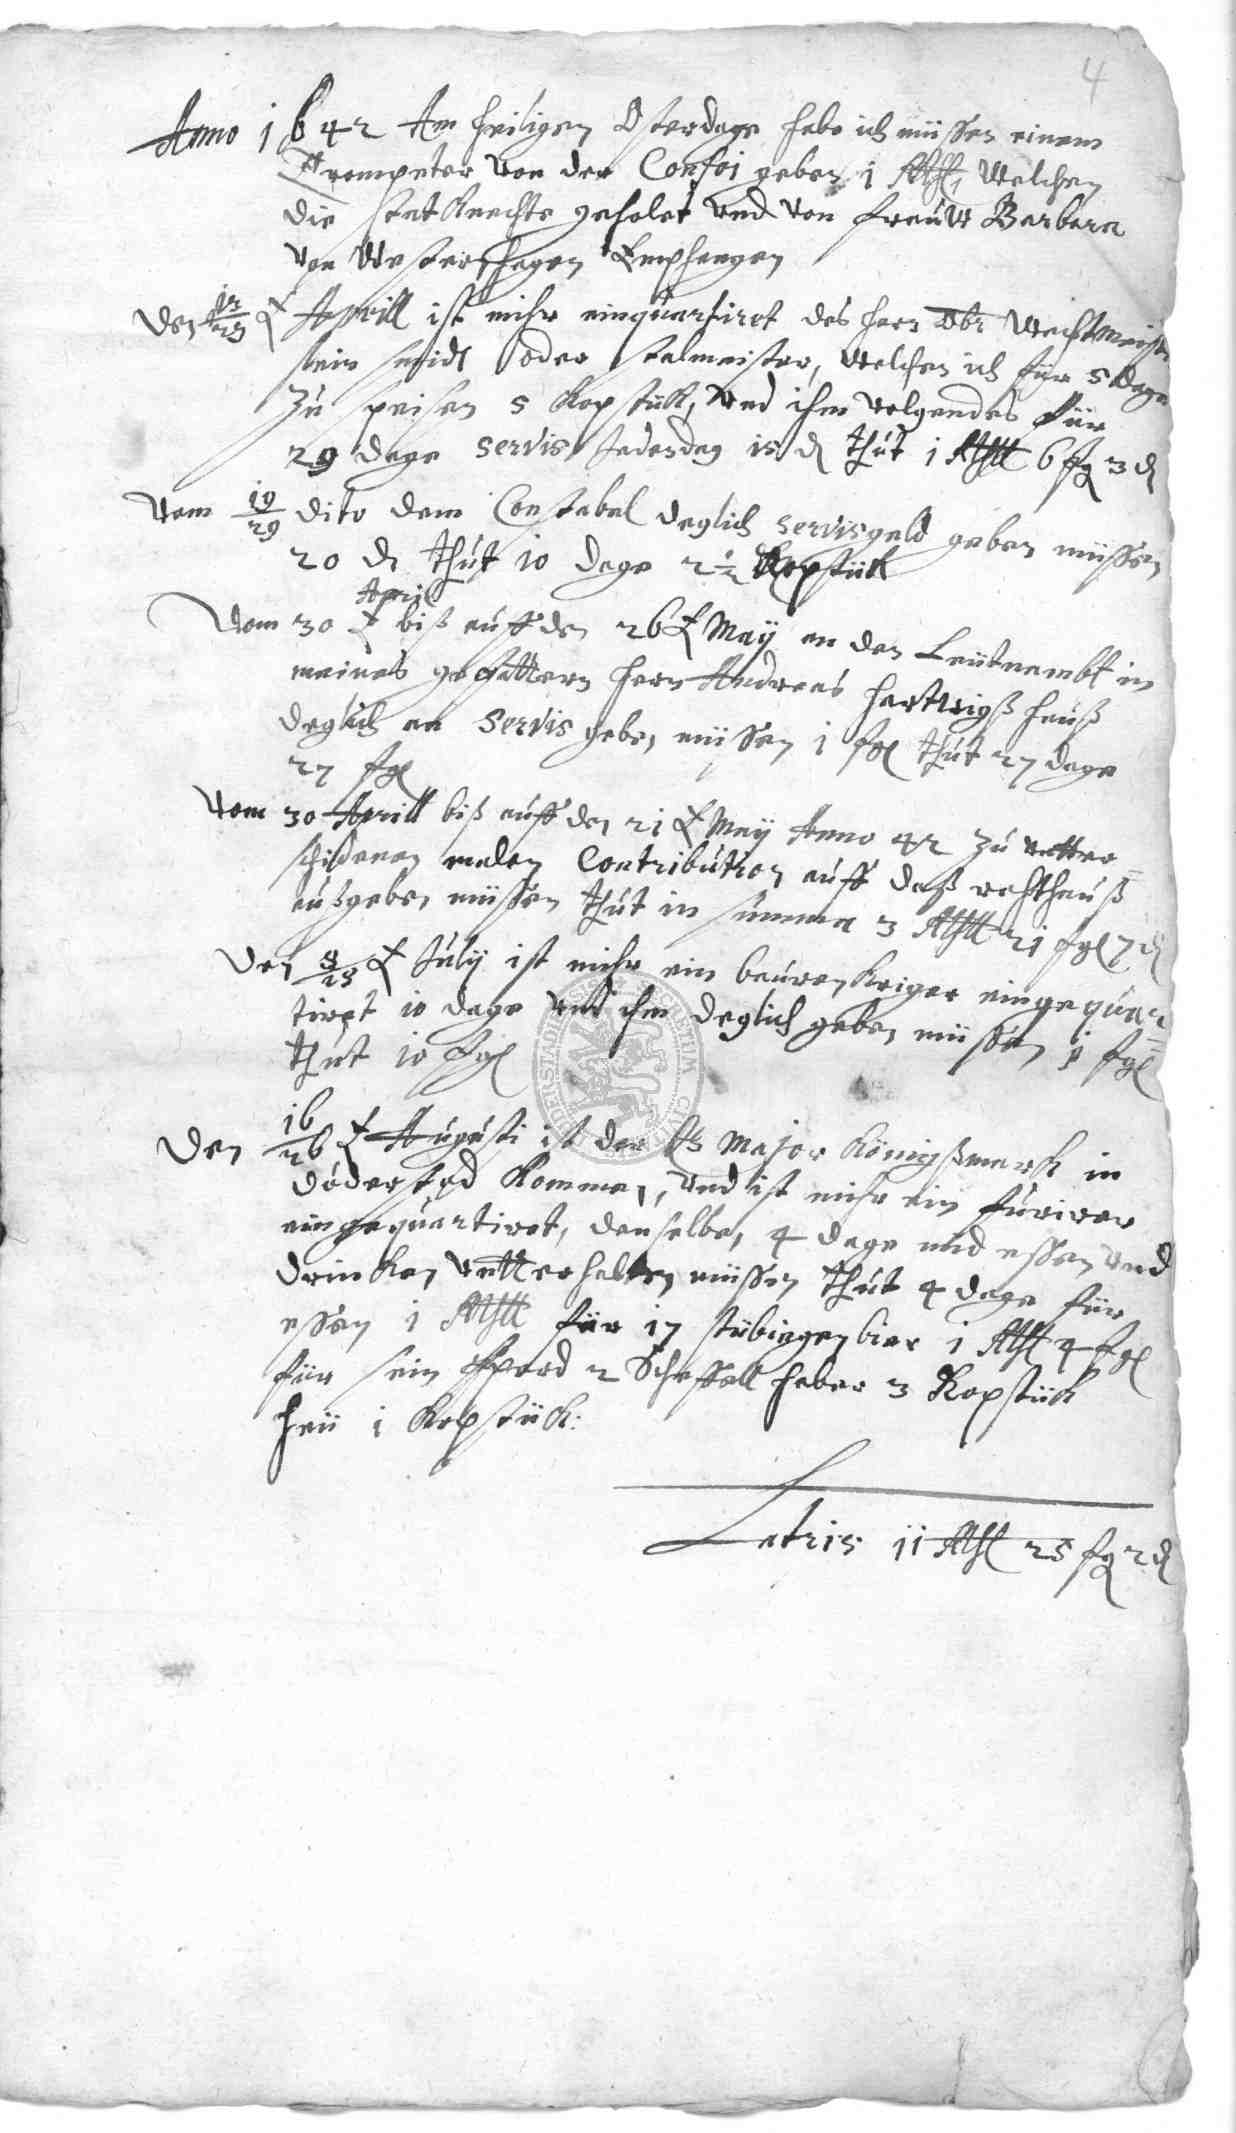 4
Anno 1642 Am heiligen Osterdage habe ich müssen einem
Trompeter von der Confoi geben 1 Rthl, Welchen
die statknechte geholet vnd von frauw Barbara
von Westernhagen Empfangen
Den 13/23 Aprill ist mihr einquartiret des hern Obr Wachtmeist
sein smidt oder stalmeister, Welchen ich für 5 dage
Zu speisen 5 Kopstück, vnd ihm volgendes für
29 dage servis Jederdag 15 d thut 1 Rthll 6 fg 3 d
Vom 19/29 dito dem Constabel deglich servisgeld geben müssen
20 d thut 10 dage 2½ Kopstück
April
Vom 30 biß auff den 26 Maÿ an den Leutnambt in
meines gefattern hern Andreas hartwigß hauß
deglich an servis geben müssen 1 fgl thut 27 dage
27 fgl
Vom 30 Aprill biß auff den 21 Maÿ Anno 42 Zu vntter=
schidenen malen Contribution auff daß rathhauß
außgeben müssen thut in summa 3 Rthll 21 fgl 7 d
Den 5/15 Julÿ ist mihr ein beurenkriger eingequar=
tiret 10 dage vnd ihm deglich geben müssen 1 fgl
thut 10 fgl
Den 16/26 Augusti ist der G. Major Königßmarck in
döderstad kommen, vnd ist mihr ein furirer
eingequartiret, denselben 4 dage mid essen vnd
drincken vntterhalten müssen thut 4 dage für
essen 1 Rthll für 17 stübiegen bier 1 Rthl 4 fgl
für sein Pferd 2 Scheffell haber 3 Kopstück
heü 1 Kopstück:
Latris 11 Rthl 25 fg 2 d